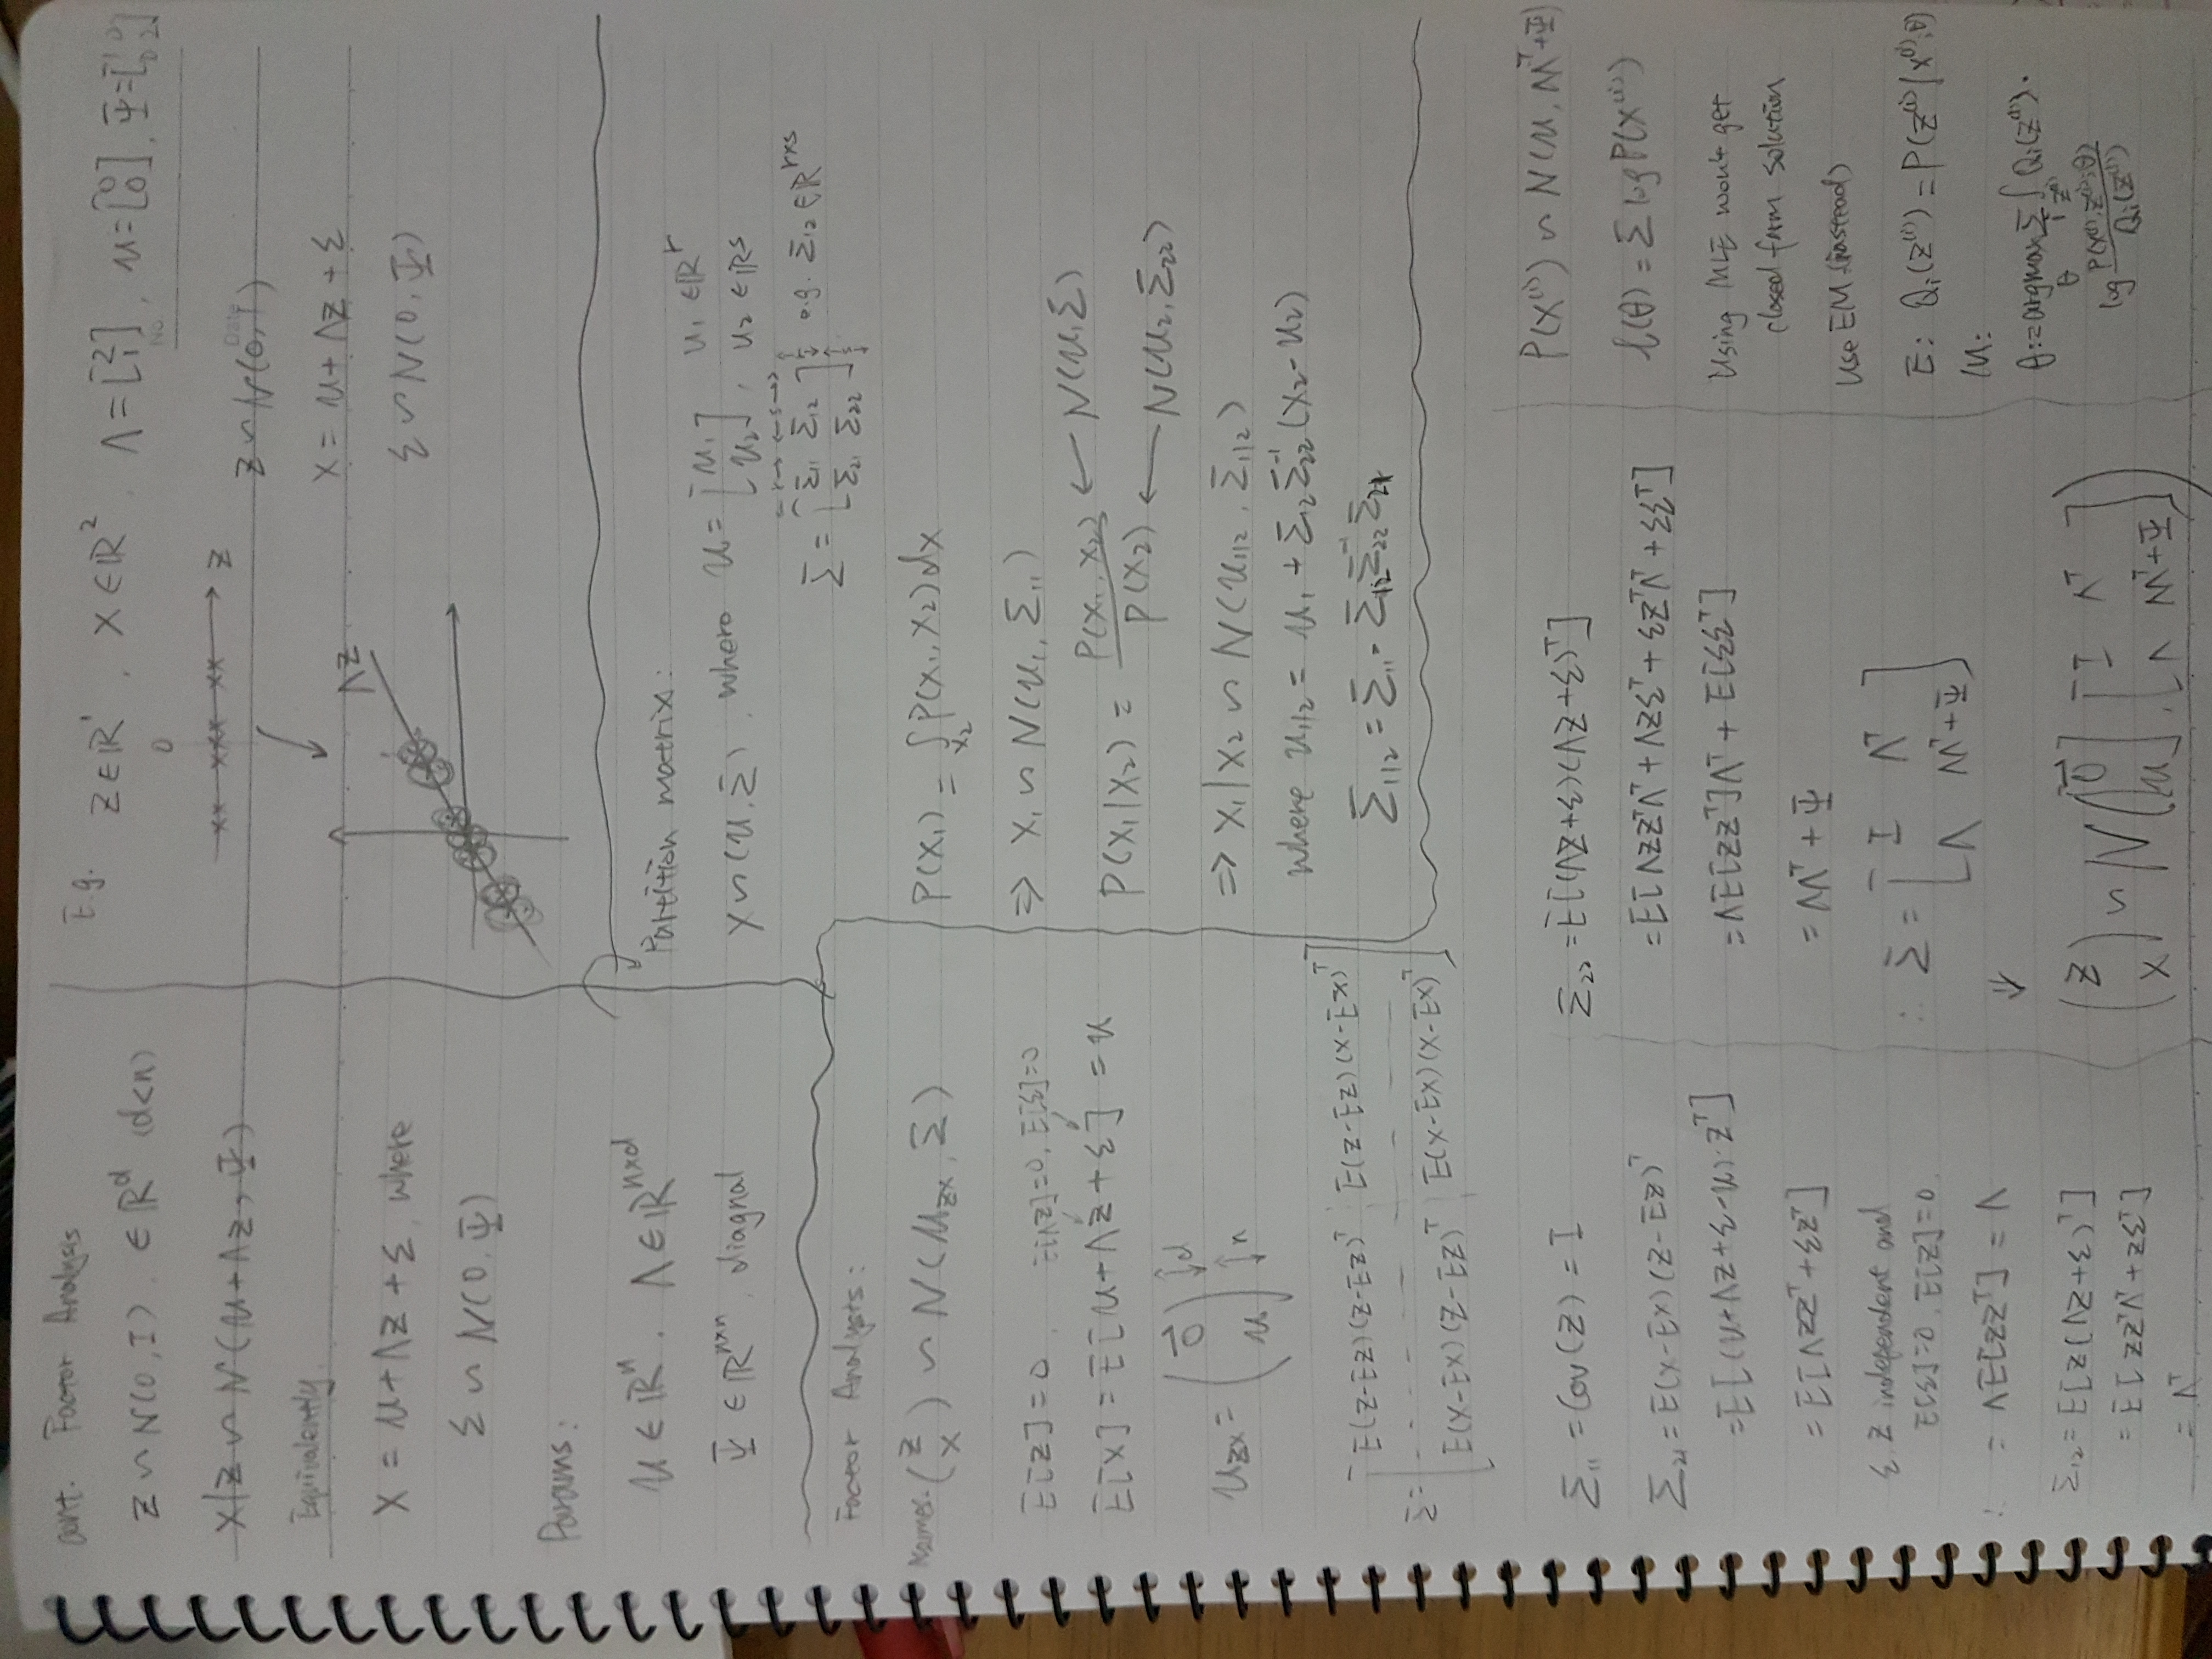 cont. Factor Analysis
Z ∽ N(0, I). ∈ ℝᵈ (d<n)
X|Z ∽ N(μ+ΛZ, Ψ)
Equivalently
X = μ+ΛZ+ε, where
ε ∽ N(0, Ψ)
Params:
μ ∈ ℝⁿ. Λ ∈ ℝⁿˣᵈ
Ψ ∈ ℝⁿˣⁿ, diagnal
E.g. Z∈ℝ¹, X∈ℝ², Λ=[2 1], μ=[0 0], Ψ=[1 0 0 2]
No.
Date
0
xx xxx xx Z
Z ∽ N(0, 1)
X = μ+ΛZ+ε
ε ∽ N(0, Ψ)
ΛZ
Partition matrix:
X∽(μ, Σ), where μ=[μ₁ μ₂], μ₁ ∈ℝʳ
μ₂ ∈ℝs
←r→ ←s→
Σ=[Σ₁₁ Σ₁₂ Σ₂₁ Σ₂₂] r s e.g. Σ₁₂∈ℝʳˣˢ
P(X₁) = ∫_{X₂} P(X₁, X₂)dx
⇒ X₁ ∽ N(μ₁, Σ₁₁)
P(X₁|X₂) = P(X₁, X₂)/P(X₂)
← N(μ, Σ)
← N(μ₂, Σ₂₂)
⇒ X₁|X₂ ∽ N(μ₁|₂, Σ₁|₂)
where μ₁|₂ = μ₁ + Σ₁₂Σ₂₂⁻¹(X₂-μ₂)
Σ₁|₂ = Σ₁₁ - Σ₁₂Σ₂₂⁻¹Σ₂₁
Factor Analysts:
(Z X) ∽ N(μ_zx, Σ)
E[Z]=0, E[ΛZ]=0, E[ε]=0
E[X] = E[μ+ΛZ+ε] = μ
μ_zx = (0⃗ μ) d n
Σ=[E(Z-EZ)(Z-EZ)ᵀ E(Z-EZ)(X-EX)ᵀ
E(X-EX)(Z-EZ)ᵀ E(X-EX)(X-EX)ᵀ]
Σ₁₁ = Cov(Z) = I
Σ₂₁ = E(X-EX)(Z-EZ)ᵀ
=E[(μ+ΛZ+ε-μ)·Zᵀ]
=E[ΛZZᵀ+εZᵀ]
ε, Z independent and
E[ε]=0, E[Z]=0.
∴ = ΛE[ZZᵀ] = Λ
Σ₁₂ = E[Z(ΛZ+ε)ᵀ]
= E[ZZᵀΛᵀ+Zεᵀ]
= Λᵀ
Σ₂₂ = E[(ΛZ+ε)(ΛZ+ε)ᵀ]
=E[ΛZZᵀΛᵀ+ΛZεᵀ+εZᵀΛᵀ+εεᵀ]
=ΛE[ZZᵀ]Λᵀ + E[εεᵀ]
= ΛΛᵀ + Ψ
∴ Σ = [I Λᵀ
Λ ΛΛᵀ+Ψ]
⇓
(Z X) ∽ N([0⃗ μ], [I Λᵀ Λ ΛΛᵀ+Ψ])
P(X⁽ⁱ⁾) ∽ N(μ, ΛΛᵀ+Ψ)
ℓ(θ) = Σ log P(X⁽ⁱ⁾)
Using MLE won't get
closed form solution
Use EM (instead)
E: Qᵢ(Z⁽ⁱ⁾) = P(Z⁽ⁱ⁾|X⁽ⁱ⁾; θ)
M:
θ:=argmax_θ Σᵢ ∫_{Z⁽ⁱ⁾} Qᵢ(Z⁽ⁱ⁾)·
log P(X⁽ⁱ⁾, Z⁽ⁱ⁾; θ)/Qᵢ(Z⁽ⁱ⁾)